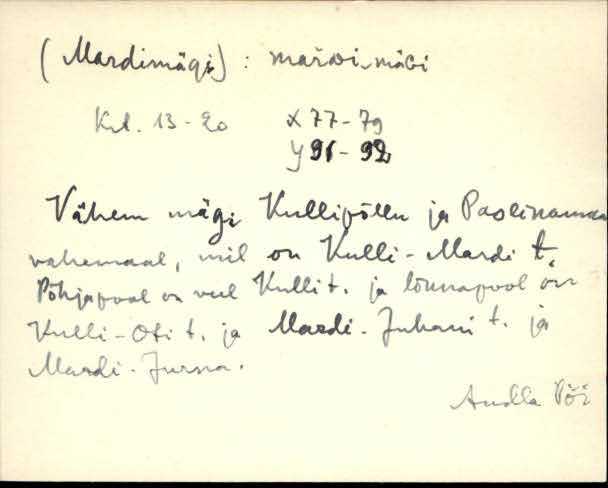 (Mardimägi) : mardi-mäGi
Krt. 13-20 X 77-79
Y 91-92
Vähem mägi Kullipõllu ja
vahemaal, mil on Kulli-Mardi t.
Põhjapool on veel Kulli t. ja lõunapool
Kulli-Oti t. ja Mardi-Juhani t. ja
Mardi-Jurna.